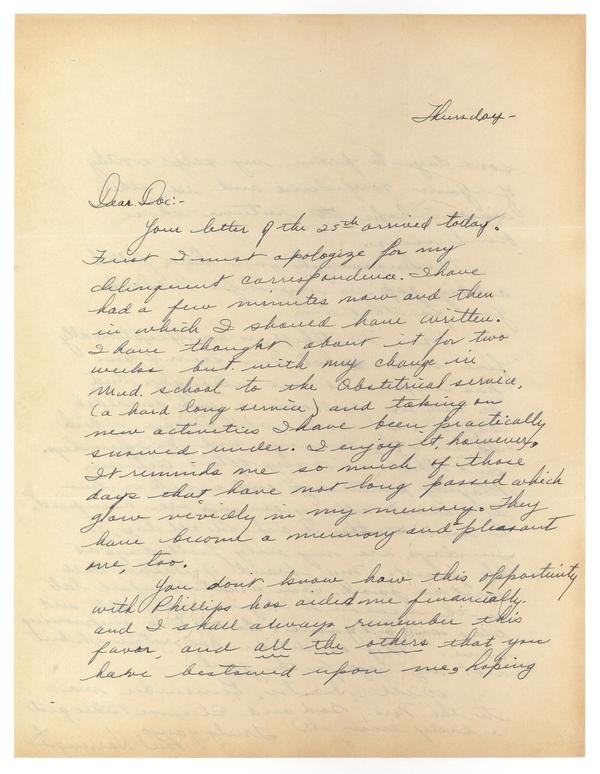 Thursday-
Dear Doc:-
Your letter of the 25th arrived today.
First I must apologize for my
delinquent correspondence. I have
had a few minutes now and then
in which I should have written.
I have thought about it for two
weeks but with my change in
Med. school to the Obstetrical service,
(a hard long service) and taking on
new activities I have been practically
snowed under. I enjoy it, however,
It reminds me so much of those
days that have not long passed which
glow vividly in my memory. They
have become a memory and a pleasant
one, too.
You don't know how this opportunity
with Phillips has aided me financially.
and I shall always remember this
favor, and all the others that you
have bestowed upon me, hoping